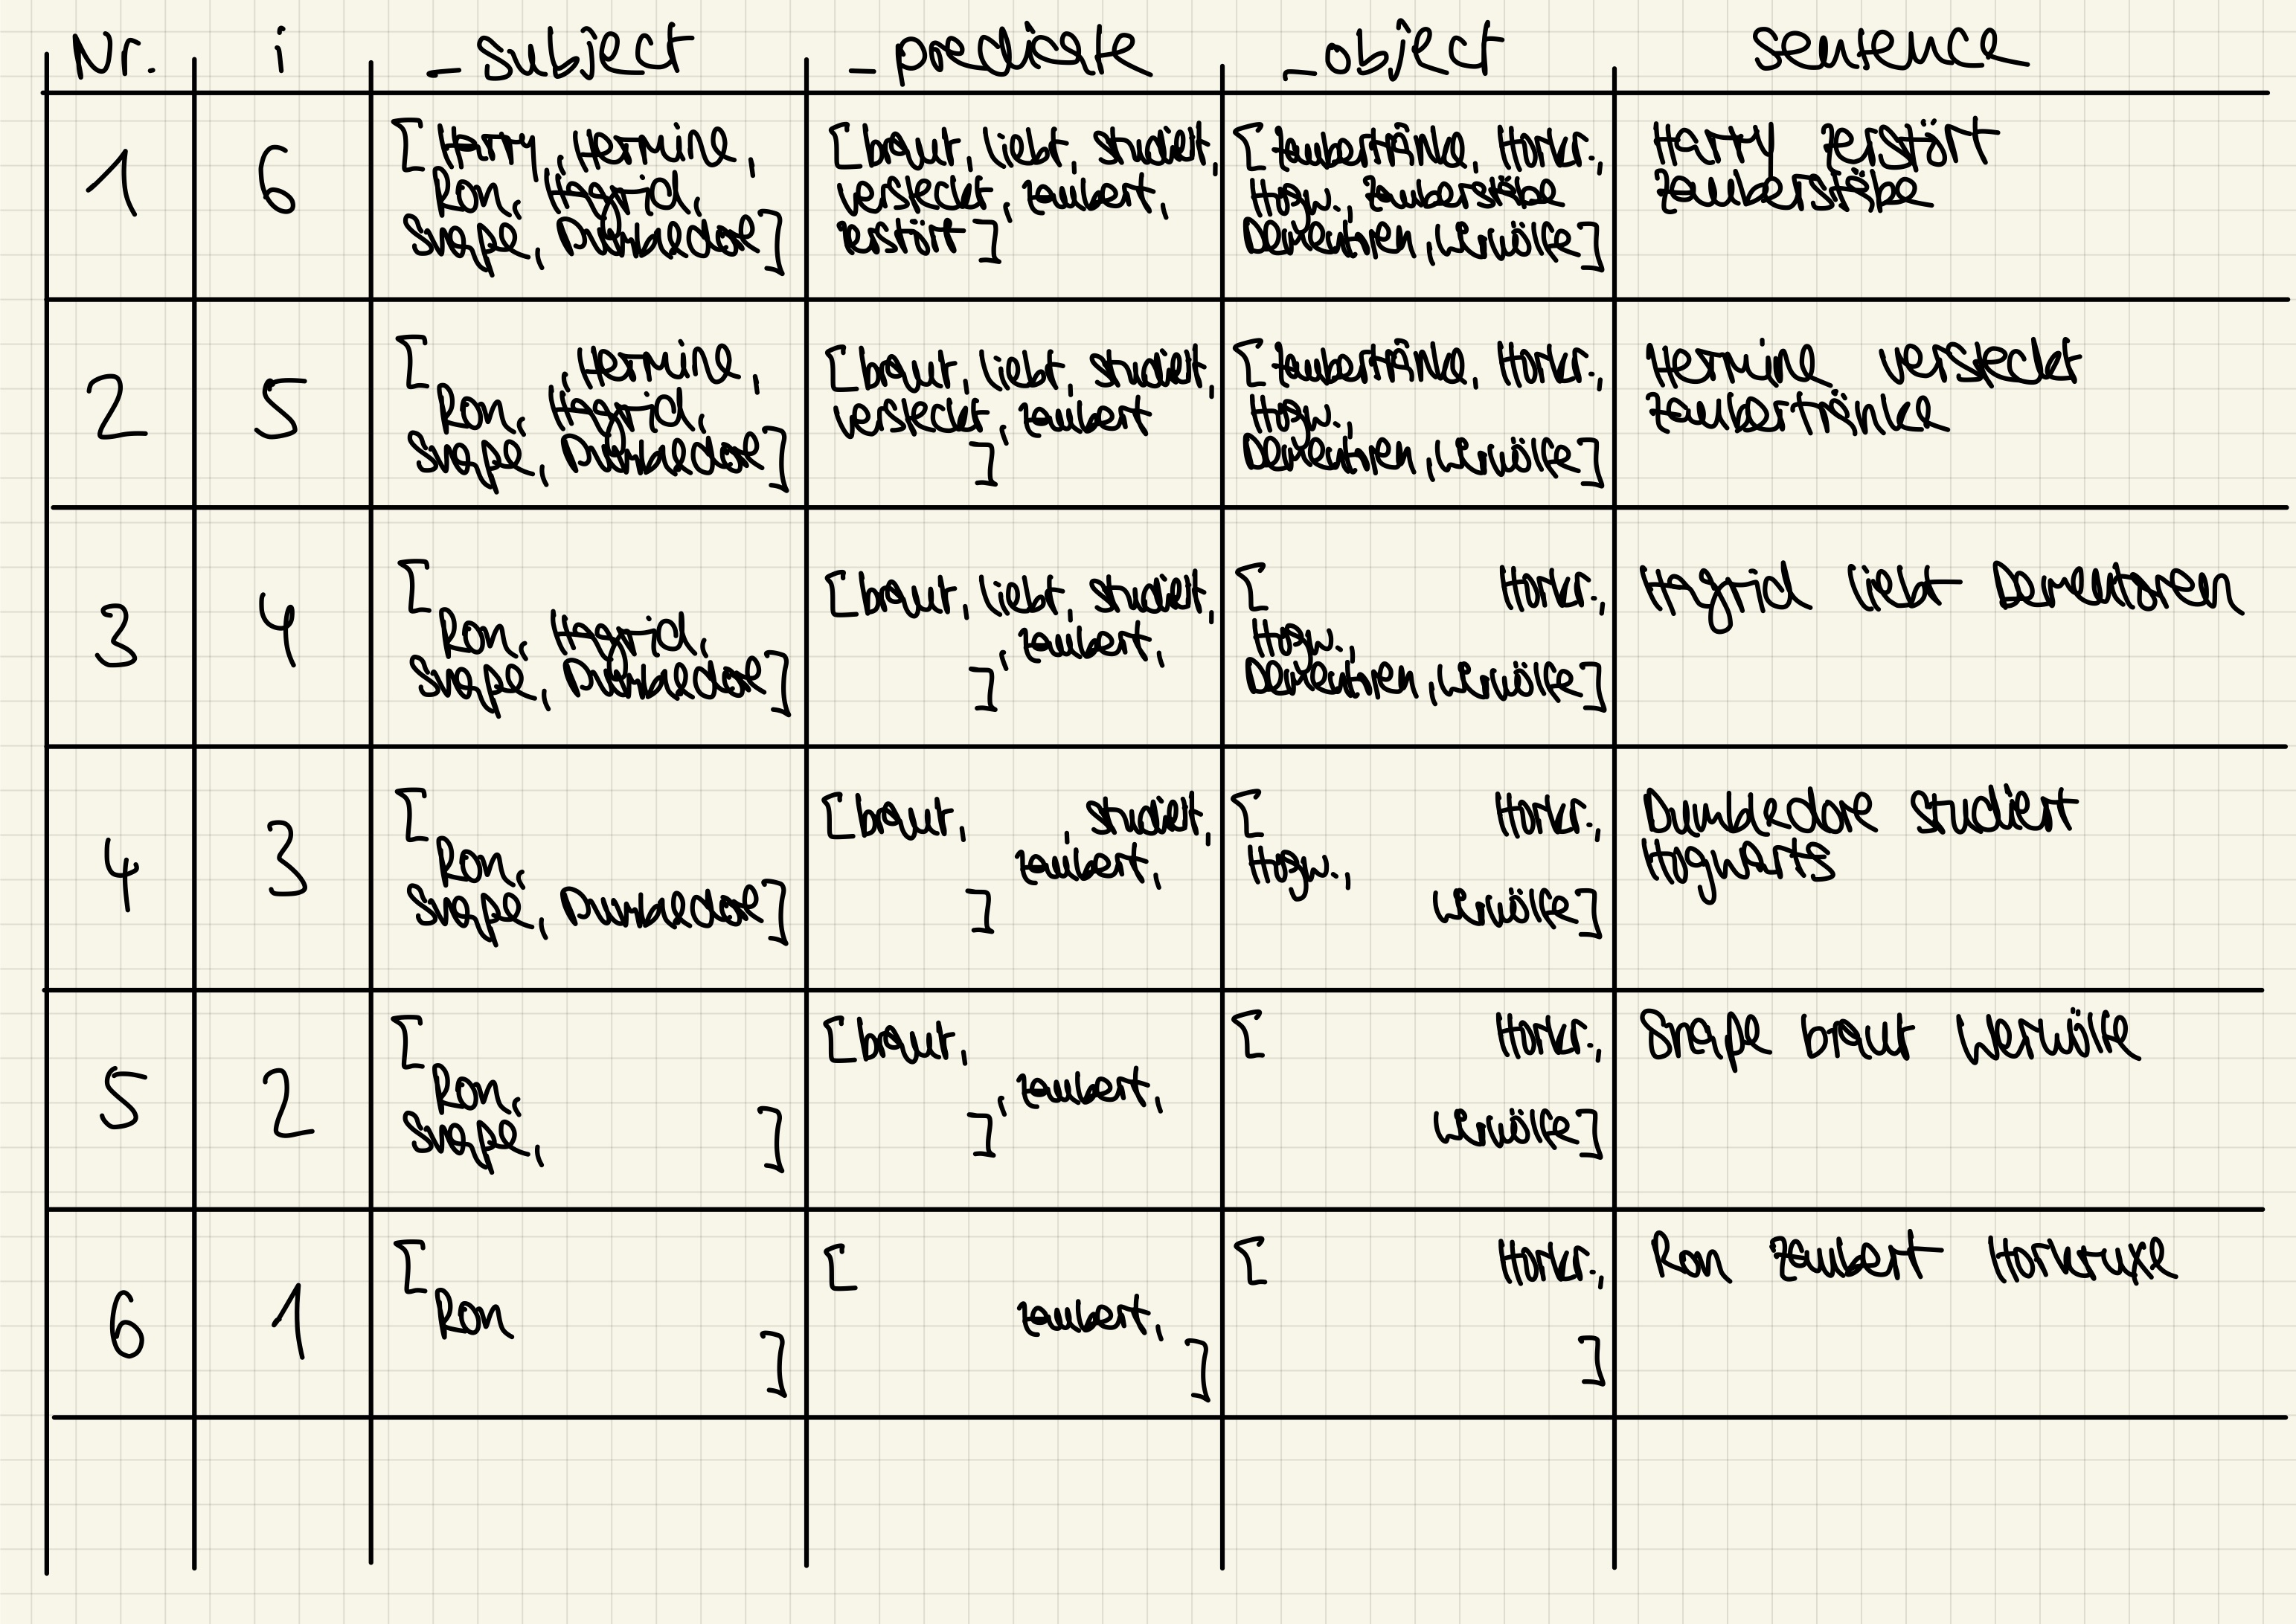 Nr. i _subject _predicate _object sentence
1 6 [Harry, Hermine, Ron, Hagrid, Snape, Dumbledore] [braut, liebt, studiert, versteckt, zaubert, zerstört] [Zaubertränke, Horkr., Hogw., Zauberstäbe Dementoren, Werwölfe] Harry zerstört Zauberstäbe
2 5 [ , Hermine, Ron, Hagrid, Snape, Dumbledore] [braut, liebt, studiert, versteckt, zaubert ] [Zaubertränke, Horkr., Hogw., Dementoren, Werwölfe] Hermine versteckt Zaubertränke
3 4 [ Ron, Hagrid, Snape, Dumbledore] [braut, liebt, studiert, , zaubert, ] [ Horkr., Hogw., Dementoren, Werwölfe] Hagrid liebt Dementoren
4 3 [ Ron, Snape, Dumbledore] [braut, , studiert, zaubert, ] [ Horkr., Hogw., Werwölfe] Dumbledore studiert Hogwarts
5 2 [ Ron, Snape, ] [braut, , zaubert, ] [ Horkr., Werwölfe] Snape braut Werwölfe
6 1 [ Ron ] [ zaubert, ] [ Horkr., ] Ron zaubert Horkruxe